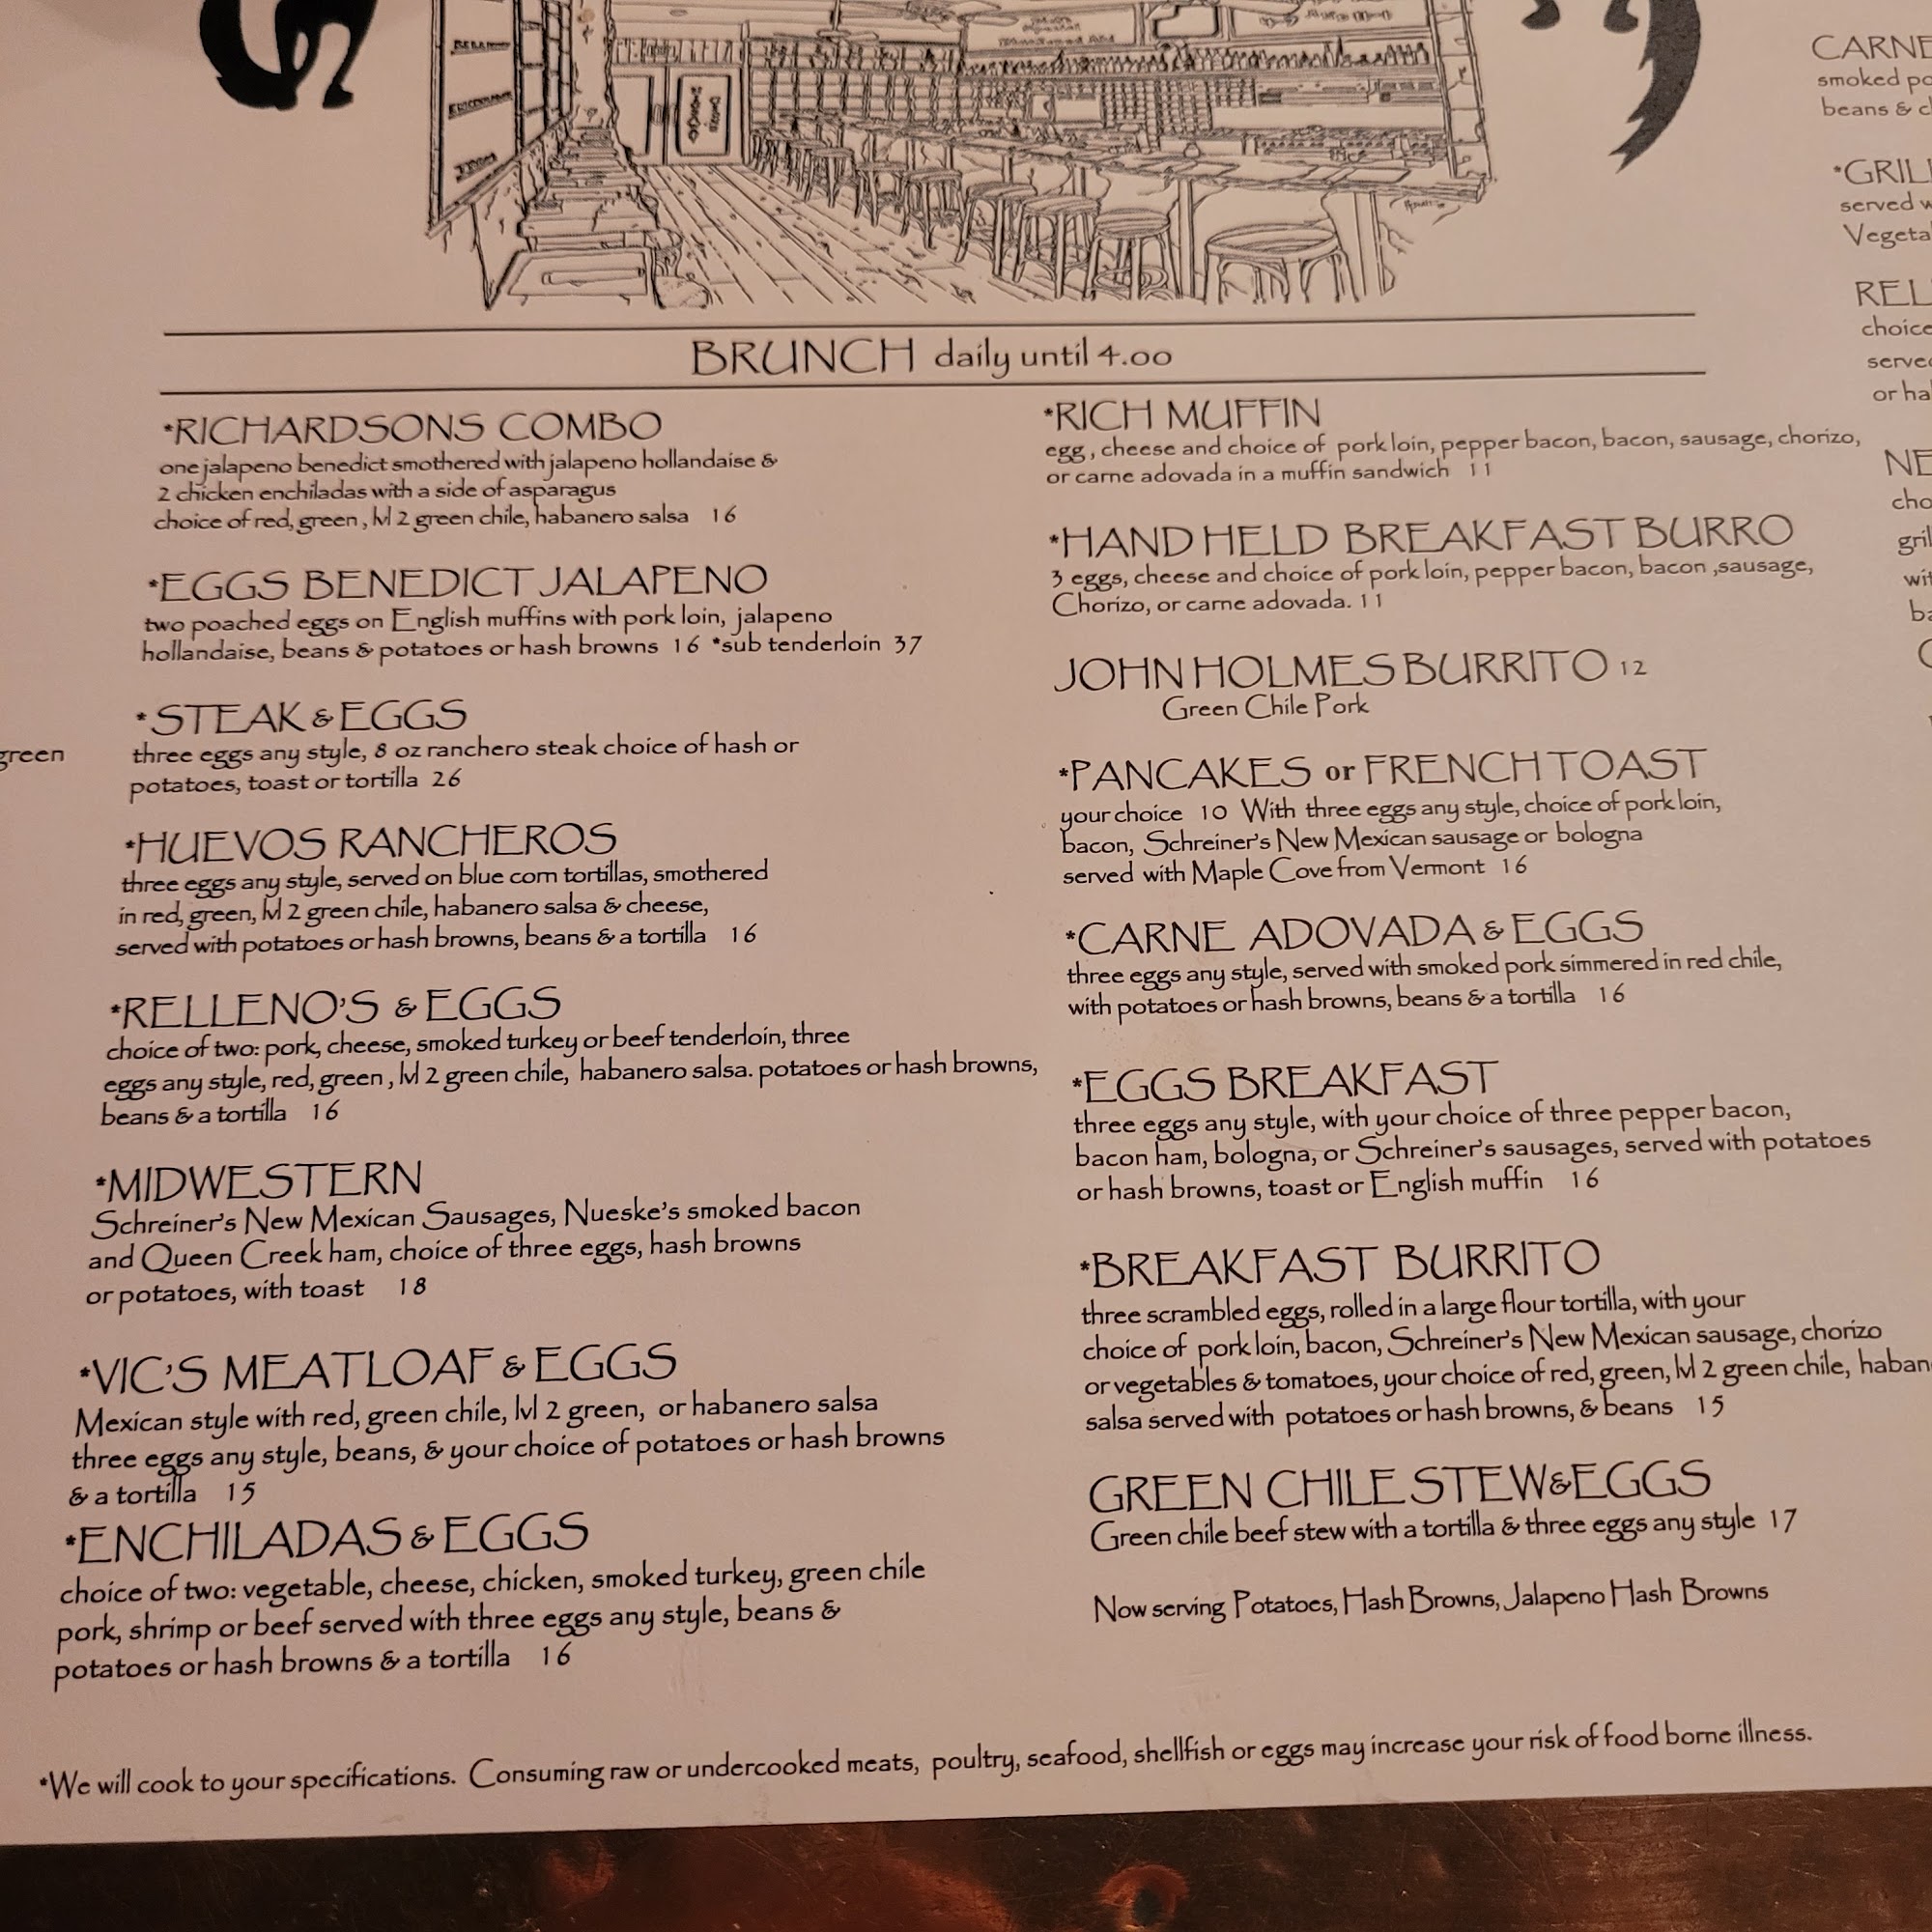 BRUNCH daily until 4.00
*RICHARDSONS COMBO
one jalapeno benedict smothered with jalapeno hollandaise &
2 chicken enchiladas with a side of asparagus
choice of red, green , lvl 2 green chile, habanero salsa 16
*EGGS BENEDICT JALAPENO
two poached eggs on English muffins with pork loin, jalapeno
hollandaise, beans & potatoes or hash browns 16 *sub tenderloin 37
* STEAK & EGGS
three eggs any style, 8 oz ranchero steak choice of hash or
potatoes, toast or tortilla 26
*HUEVOS RANCHEROS
three eggs any style, served on blue corn tortillas, smothered
in red, green, lvl 2 green chile, habanero salsa & cheese,
served with potatoes or hash browns, beans & a tortilla 16
*RELLENO'S & EGGS
choice of two: pork, cheese, smoked turkey or beef tenderloin, three
eggs any style, red, green , lvl 2 green chile, habanero salsa. potatoes or hash browns,
beans & a tortilla 16
*MIDWESTERN
Schreiner's New Mexican Sausages, Nueske's smoked bacon
and Queen Creek ham, choice of three eggs, hash browns
or potatoes, with toast 18
*VIC'S MEATLOAF & EGGS
Mexican style with red, green chile, lvl 2 green, or habanero salsa
three eggs any style, beans, & your choice of potatoes or hash browns
& a tortilla 15
*ENCHILADAS & EGGS
choice of two: vegetable, cheese, chicken, smoked turkey, green chile
pork, shrimp or beef served with three eggs any style, beans &
potatoes or hash browns & a tortilla 16
*RICH MUFFIN
egg , cheese and choice of pork loin, pepper bacon, bacon, sausage, chorizo,
or carne adovada in a muffin sandwich 11
*HAND HELD BREAKFAST BURRO
3 eggs, cheese and choice of pork loin, pepper bacon, bacon ,sausage,
Chorizo, or carne adovada. 11
JOHN HOLMES BURRITO 12
Green Chile Pork
*PANCAKES or FRENCH TOAST
your choice 10 With three eggs any style, choice of pork loin,
bacon, Schreiner's New Mexican sausage or bologna
served with Maple Cove from Vermont 16
*CARNE ADOVADA & EGGS
three eggs any style, served with smoked pork simmered in red chile,
with potatoes or hash browns, beans & a tortilla 16
*EGGS BREAKFAST
three eggs any style, with your choice of three pepper bacon,
bacon ham, bologna, or Schreiner's sausages, served with potatoes
or hash browns, toast or English muffin 16
*BREAKFAST BURRITO
three scrambled eggs, rolled in a large flour tortilla, with your
choice of pork loin, bacon, Schreiner's New Mexican sausage, chorizo
or vegetables & tomatoes, your choice of red, green, lvl 2 green chile, haban
salsa served with potatoes or hash browns, & beans 15
GREEN CHILE STEW&EGGS
Green chile beef stew with a tortilla & three eggs any style 17
Now serving Potatoes, Hash Browns, Jalapeno Hash Browns
*We will cook to your specifications. Consuming raw or undercooked meats, poultry, seafood, shellfish or eggs may increase your risk of food borne illness.
green
CARNE
smoked po
beans & c
*GRIL
served w
Vegeta
REL
choice
serve
or ha
NE
cho
gril
wit
ba